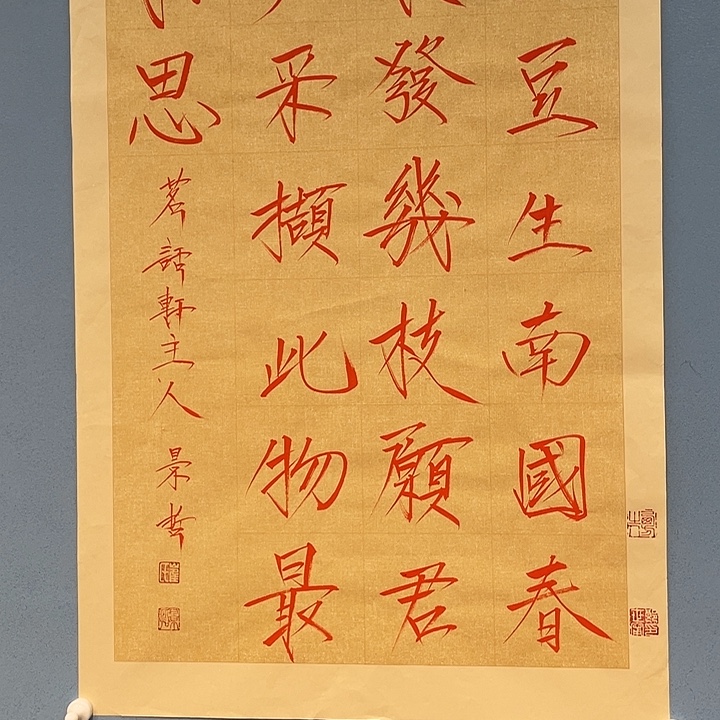 豆生南國春
發幾枝願君
采擷此物最
思
茗話軒主人
景哲